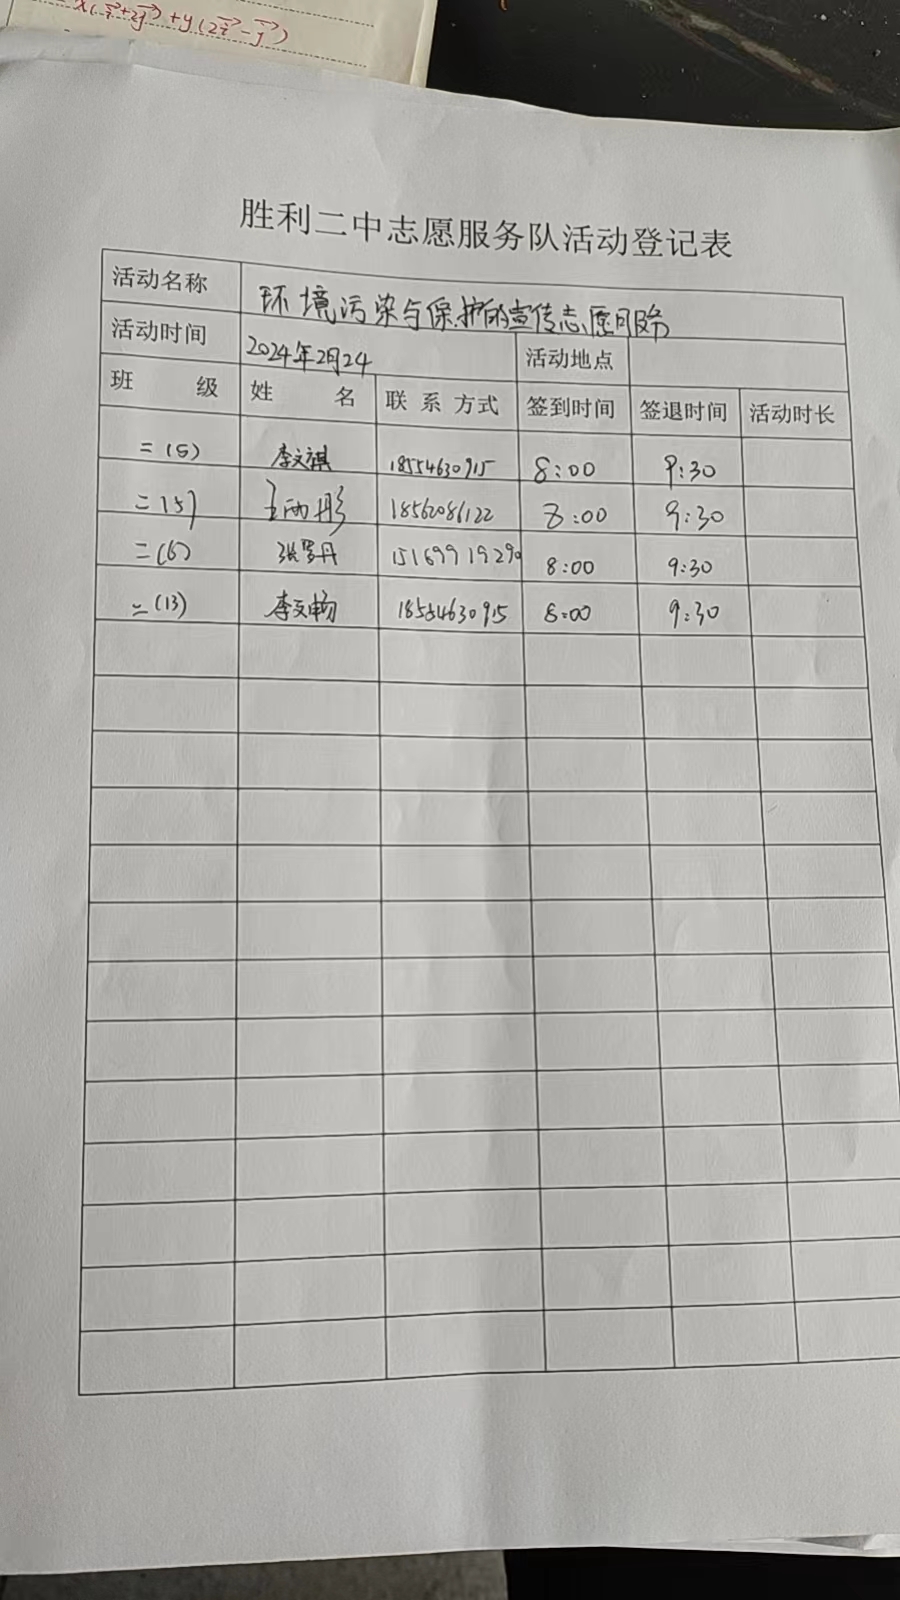 x(i+2j)+y(2i-j)
胜利二中志愿服务队活动登记表
活动名称 环境污染与保护的宣传志愿服务
活动时间 2024年2月24 活动地点
班 级 姓 名 联系方式 签到时间 签退时间 活动时长
二(5) 李文祺 18554630915 8:00 9:30
二(5) 王雨彤 18562086122 8:00 9:30
二(6) 张 丹 15169919290 8:00 9:30
二(13) 李文畅 18554630915 8:00 9:30